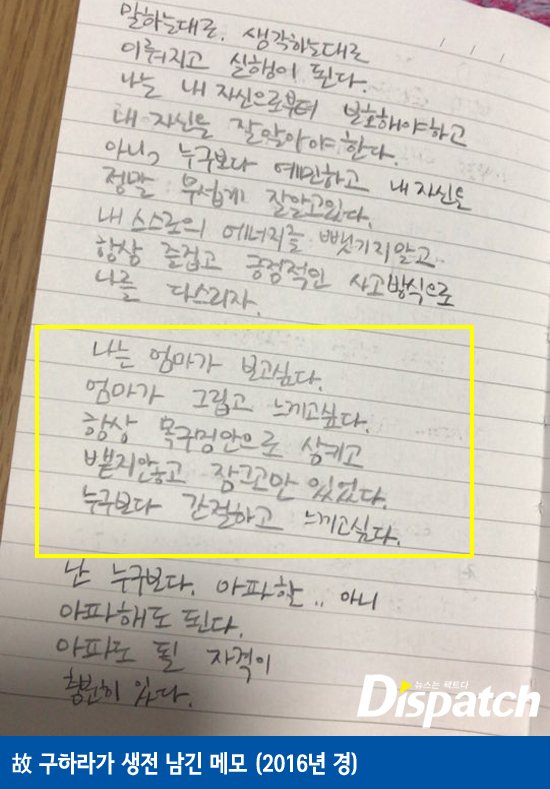 말하는대로, 생각하는대로
이뤄지고 실행이 된다.
나는 내 자신으로부터 보호해야하고
내 자신을 잘 알아야 한다.
아니, 누구보다 예민하고 내 자신을
정말 무섭게 잘알고있다.
내 스스로의 에너지를 뺏기지말고
항상 즐겁고 긍정적인 사고방식으로
나를 다스리자.
나는 엄마가 보고싶다.
엄마가 그립고 느끼고싶다.
항상 목구멍안으로 삼키고
뱉지안놓고 잠그고만 있었다.
누구보다 간절하고 느끼고싶다.
난 누구보다. 아파한.. 아니
아파해도 된다.
아파도 될 자격이
충분히 있다.
뉴스는 팩트다
Dispatch
故 구하라가 생전 남긴 메모 (2016년 경)